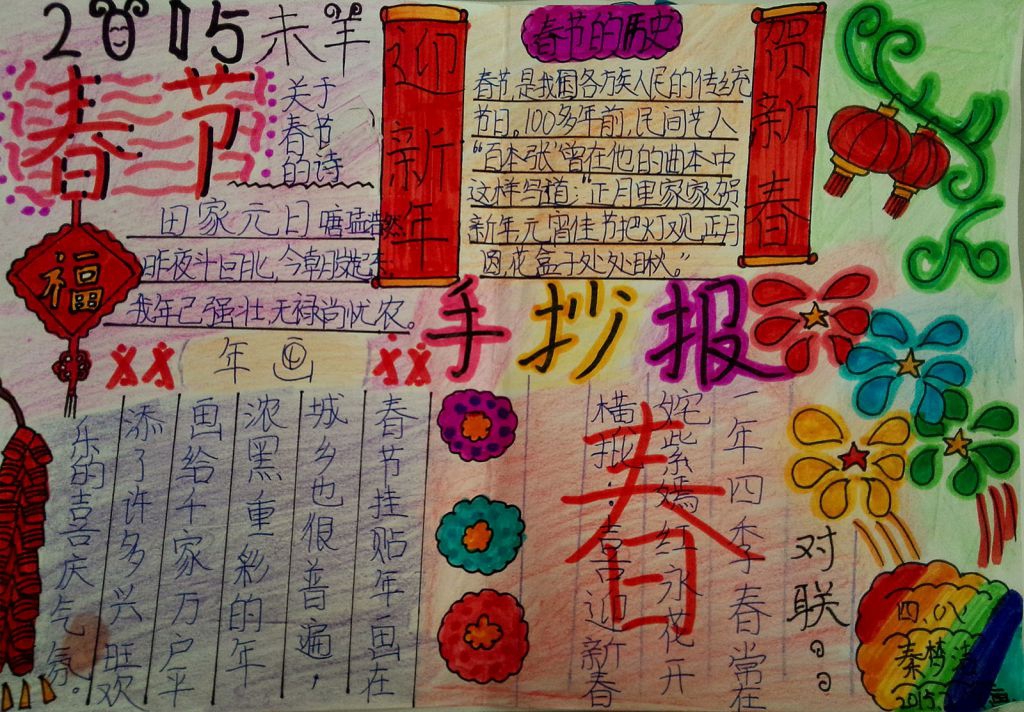 2015未羊
春节
关于
春节
的诗
田家元日 唐孟浩然
昨夜斗回北,今朝岁起东
我年已强壮,无禄尚忧农。
福
迎新年
春节的历史
春节,是我国各方族人民的传统
节日。100多年前,民间艺人
“百本张”曾在他的曲本中
这样写道:“正月里家家贺
新年元宵佳节把灯观,正月
圆,花盒子处处瞅。”
贺新春
手抄报
年画
春节挂贴年画在
城乡也很普遍,
浓黑重彩的年
画给千家万户平
添了许多兴旺欢
乐的喜庆气氛。
春
对联。。
一年四季春常在
姹紫嫣红永花开
横批:吉迎新春
四、八
秦梦
2015.